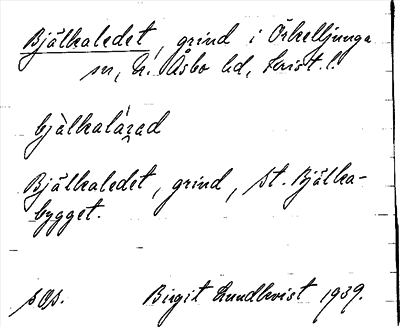 Bjälkaledet, grind i Örkelljunga
sn, N. Åsbo hd, Krist. l.
bjàlkalárad
Bjälkaledet, grind, St. Bjälka-
bygget.
sOp.  Birgit Lundkvist 1939.